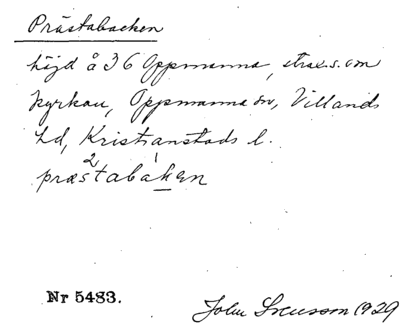 Prästabacken
höjd å 36 Oppmanna, strax s. om
kyrkan, Oppmanna sn, Villands
hd, Kristianstads l.
præstabaken
Nr 5483.
John Svensson 1929